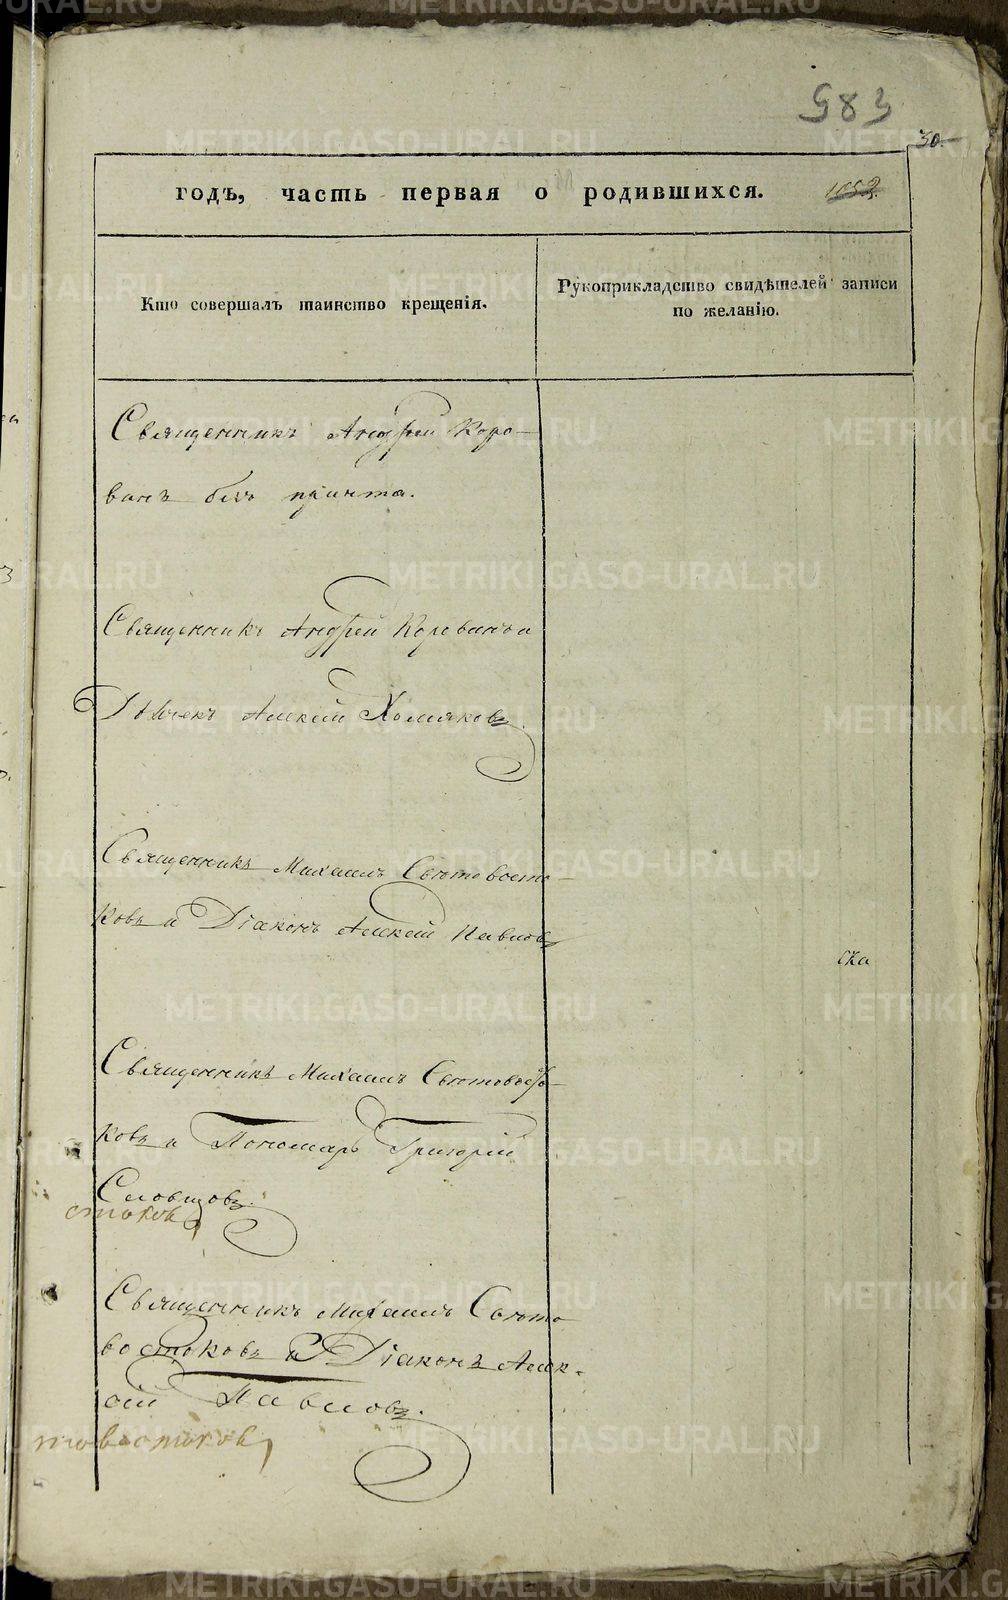 983
30.
годъ, часть первая о родившихся. 1052
Кто совершалъ таинство крещенія.
Рукоприкладство свидѣтелей записи
по желанію.
Священникъ Андрей Коро-
ванъ безъ причта.
Священникъ Андрей Корованъ и
Дьячекъ Алексій Хомяковъ
Священникъ Михаилъ Свѣтовосто-
ковъ и Діаконъ Алексій Павловъ
ска
Священникъ Михаилъ Свѣтовосто-
ковъ и Пономарь Григорій
Словцовъ.
стоковъ
Священникъ Михаилъ Свѣто-
востоковъ и Діаконъ Алек-
сій Павловъ.
товостоковъ
METRIKI.GASO-URAL.RU